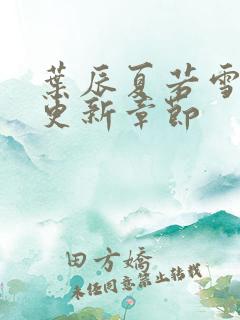 葉辰夏若雪
更新章節
田方嬌
未經同意禁止轉載